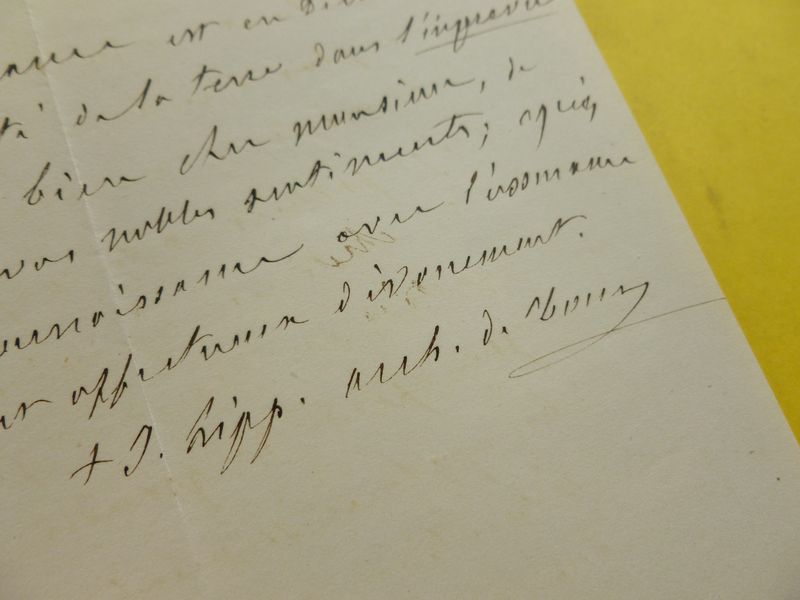 est en Di
té de la terre dans l'imprévu
bien cher monsieur, de
vos nobles sentiments; agréez
onnaissance avec l'assurance
affectueux dévouement.
+ J. hipp. arch. de Tours